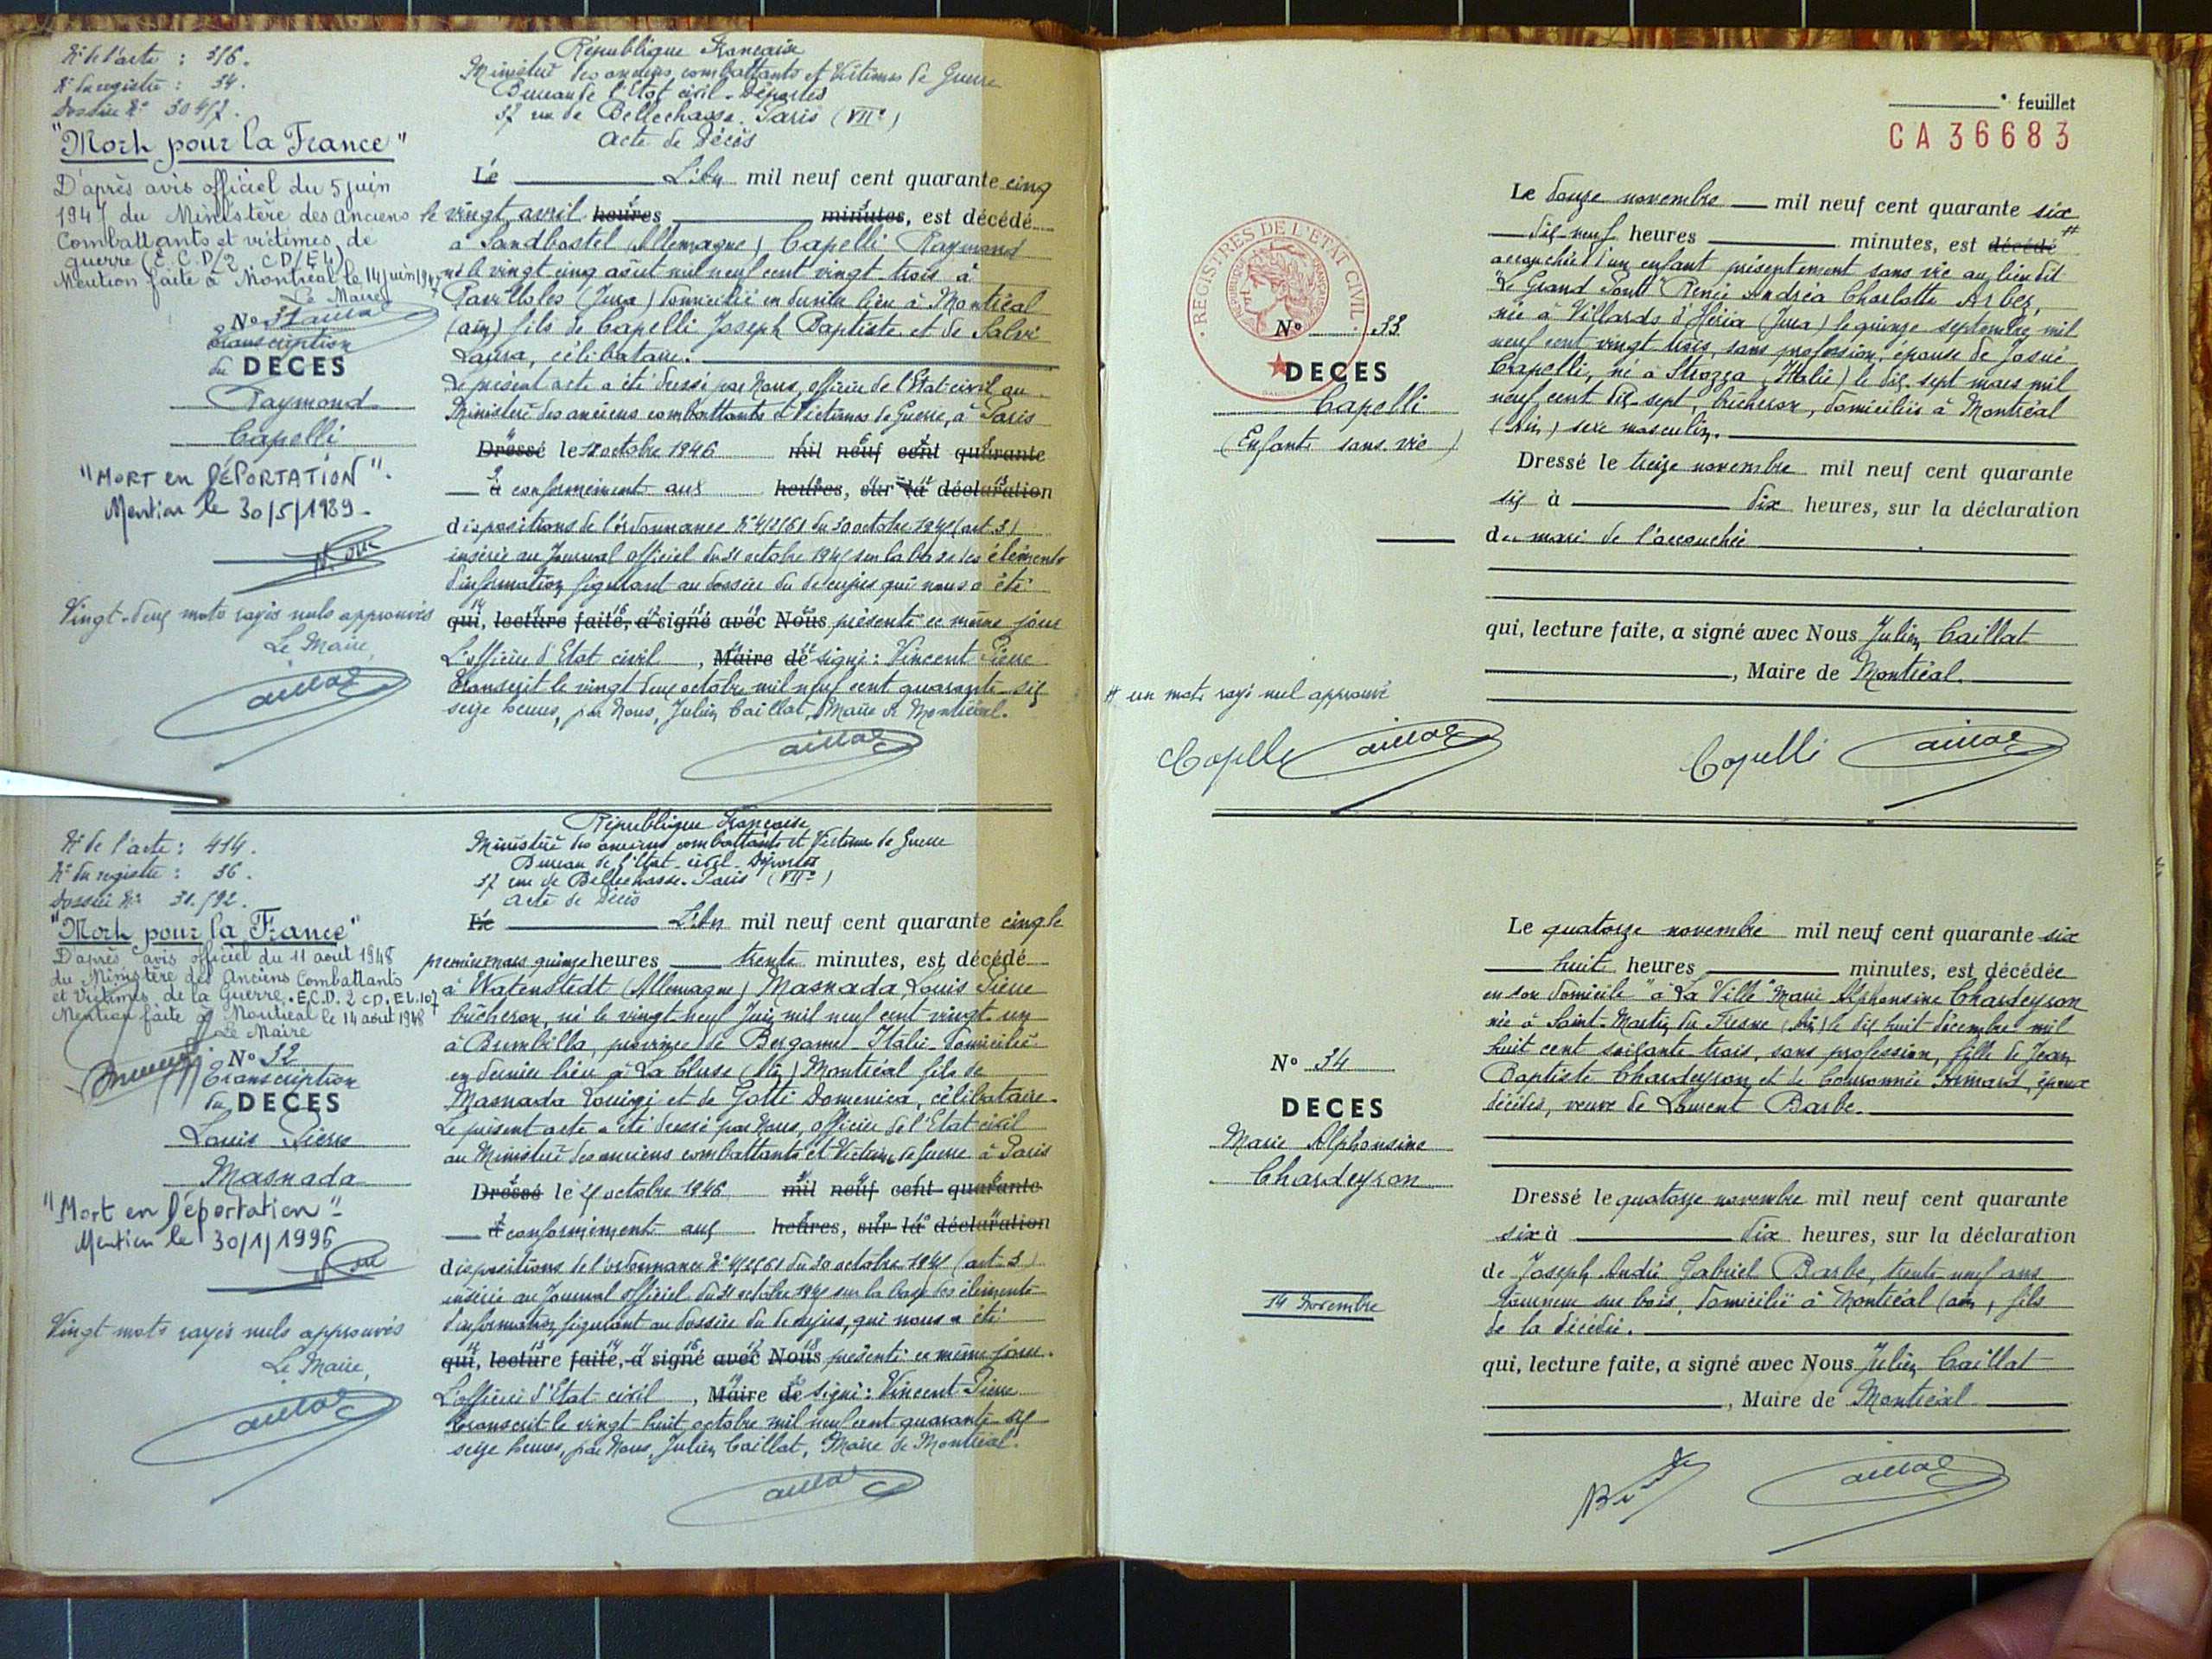 N° de l'acte : 376.
N° du registre : 34.
Dossier N° 30.457.
"Mort pour la France"
D'après avis officiel du 5 juin
1947 du Ministère des Anciens
Combattants et victimes de
guerre (E.C.D/2 CD/EL)
Mention faite à Montréal le 14 juin 1947
Le Maire
N° 31
Transcription
du DECES
Raymond
Capelli
"MORT en DÉPORTATION".
Mention le 30/5/1989-
Vingt-deux mots rayés nuls approuvés
Le Maire,
République Française
Ministère des anciens combattants et Victimes de Guerre
Bureau de l'Etat civil - Déportés
37 rue de Bellechasse. Paris (VIIe)
Acte de Décès
Le L'an mil neuf cent quarante cinq
le vingt avril heures minutes, est décédé
à Sandbostel (Allemagne) Capelli Raymond
né le vingt cinq août mil neuf cent vingt-trois à
(Jura) domicilié en dernier lieu à Montréal
(ain) fils de Capelli Joseph Baptiste et de Salvi
Laura, célibataire.
Le présent acte a été dressé par Nous, officier de l'Etat-civil au
Ministère des anciens combattants et Victimes de Guerre, à Paris
Dressé le octobre 1946 mil neuf cent quarante
à conformément aux heures, sur la déclaration
dispositions de l'ordonnance du 30 octobre 1945 (art. 3)
insérée au Journal officiel du 31 octobre 1945 sur la base des éléments
d'information figurant au dossier du de cujus qui nous a été
qui, lecture faite, a signé avec Nous présenté ce même jour
L'officier d'Etat civil, Maire de signé : Vincent Pierre
Transcrit le vingt deux octobre mil neuf cent quarante-six
seize heures, par Nous, Julien Caillat, Maire de Montréal.
N° de l'acte : 414.
N° du registre : 36.
Dossier N° 31.592.
"Mort pour la France"
D'après avis officiel du 11 août 1948
du Ministère des Anciens Combattants
et Victimes de la Guerre. E.C.D. 2 CD. EL.107
Mention faite à Montréal le 14 août 1948
Le Maire
N° 32
Transcription
du DECES
Louis Pierre
Masnada
"Mort en Déportation"-
Mention le 30/1/1996
Vingt mots rayés nuls approuvés
Le Maire,
République Française
Ministère des anciens combattants et Victimes de Guerre
Bureau de l'Etat-civil - Déportés
37 rue de Bellechasse. Paris (VIIe)
Acte de Décès
Le L'an mil neuf cent quarante cinq le
premier mars quinze heures trente minutes, est décédé
à Watenstedt (Allemagne) Masnada, Louis Pierre
bûcheron, né le vingt-neuf Juin mil neuf cent vingt-un
à Brembilla, province de Bergame - Italie - domicilié
en dernier lieu à La Cluse (Ain) Montréal fils de
Masnada Louigi et de Gotti Domenica, célibataire.
Le présent acte a été dressé par Nous, officier de l'Etat-civil
au Ministère des anciens combattants et Victimes de Guerre à Paris
Dressé le octobre 1946 mil neuf cent quarante
à conformément aux heures, sur la déclaration
dispositions de l'ordonnance du 30 octobre 1945 (art. 3)
insérée au Journal officiel du 31 octobre 1945 sur la base des éléments
d'information figurant au dossier du de cujus, qui nous a été
qui, lecture faite, a signé avec Nous présenté ce même jour.
L'officier d'Etat civil, Maire de signé : Vincent Pierre
Transcrit le vingt-huit octobre mil neuf cent quarante-six
seize heures, par Nous, Julien Caillat, Maire de Montréal.
e feuillet
CA 36683
REGISTRES DE L'ETAT CIVIL
N° 33.
DECES
Capelli
(Enfant sans vie)
# un mot rayé nul approuvé
Le douze novembre mil neuf cent quarante six
dix-neuf heures minutes, est décédé #
accouchée d'un enfant présentement sans vie au lieu dit
"Le Grand Pont" Renée Andréa Charlotte Arbez,
née à Villards d'Héria (Jura) le quinze septembre mil
neuf cent vingt trois, sans profession, épouse de Josué
Capelli, né à Strozza (Italie) le dix-sept mars mil
neuf cent dix-sept, bûcheron, domiciliés à Montréal
(Ain) sexe masculin.
Dressé le treize novembre mil neuf cent quarante
six à dix heures, sur la déclaration
du mari de l'accouchée
qui, lecture faite, a signé avec Nous Julien Caillat
, Maire de Montréal.
Capelli
Capelli
N° 34
DECES
Marie Alphonsine
Chardeyron
14 Novembre
Le quatorze novembre mil neuf cent quarante six
huit heures minutes, est décédée
en son domicile "à La Ville" Marie Alphonsine Chardeyron
née à Saint-Martin du Fresne (Ain) le dix huit décembre mil
huit cent soixante-trois, sans profession, fille de Jean
Baptiste Chardeyron et de Couronnée, époux
décédés, veuve de Laurent Barbe.
Dressé le quatorze novembre mil neuf cent quarante
six à dix heures, sur la déclaration
de Joseph André Gabriel Barbe, trente-neuf ans
tourneur sur bois, domicilié à Montréal (ain), fils
de la décédée.
qui, lecture faite, a signé avec Nous Julien Caillat
, Maire de Montréal